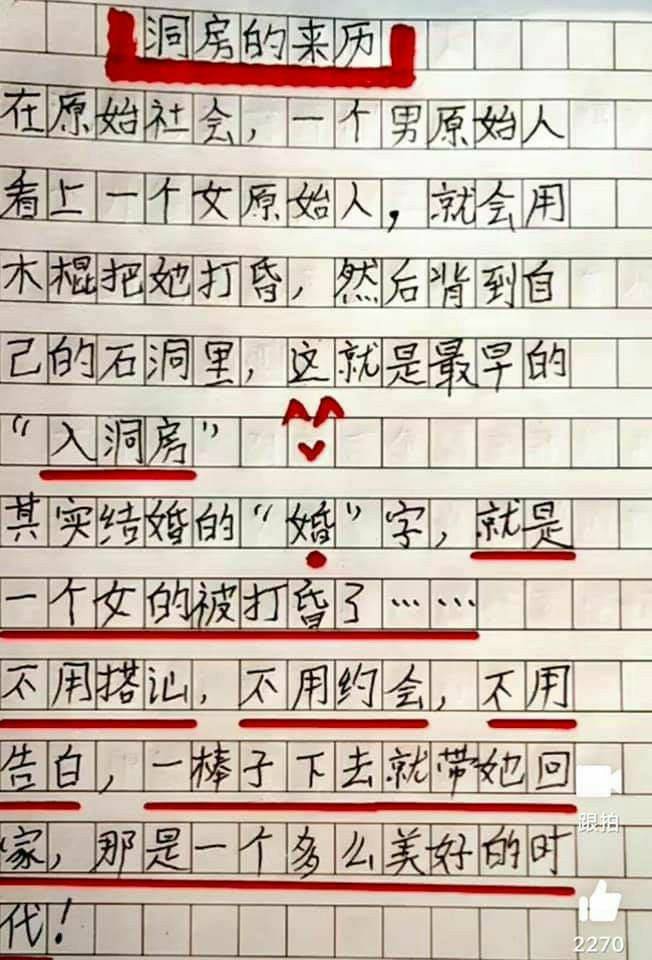 洞房的来历
在原始社会，一个男原始人
看上一个女原始人，就会用
木棍把她打昏，然后背到自
己的石洞里，这就是最早的
“入洞房”
其实结婚的“婚”字，就是
一个女的被打昏了……
不用搭讪，不用约会，不用
告白，一棒子下去就带她回
家，那是一个多么美好的时
代！
跟拍
2270